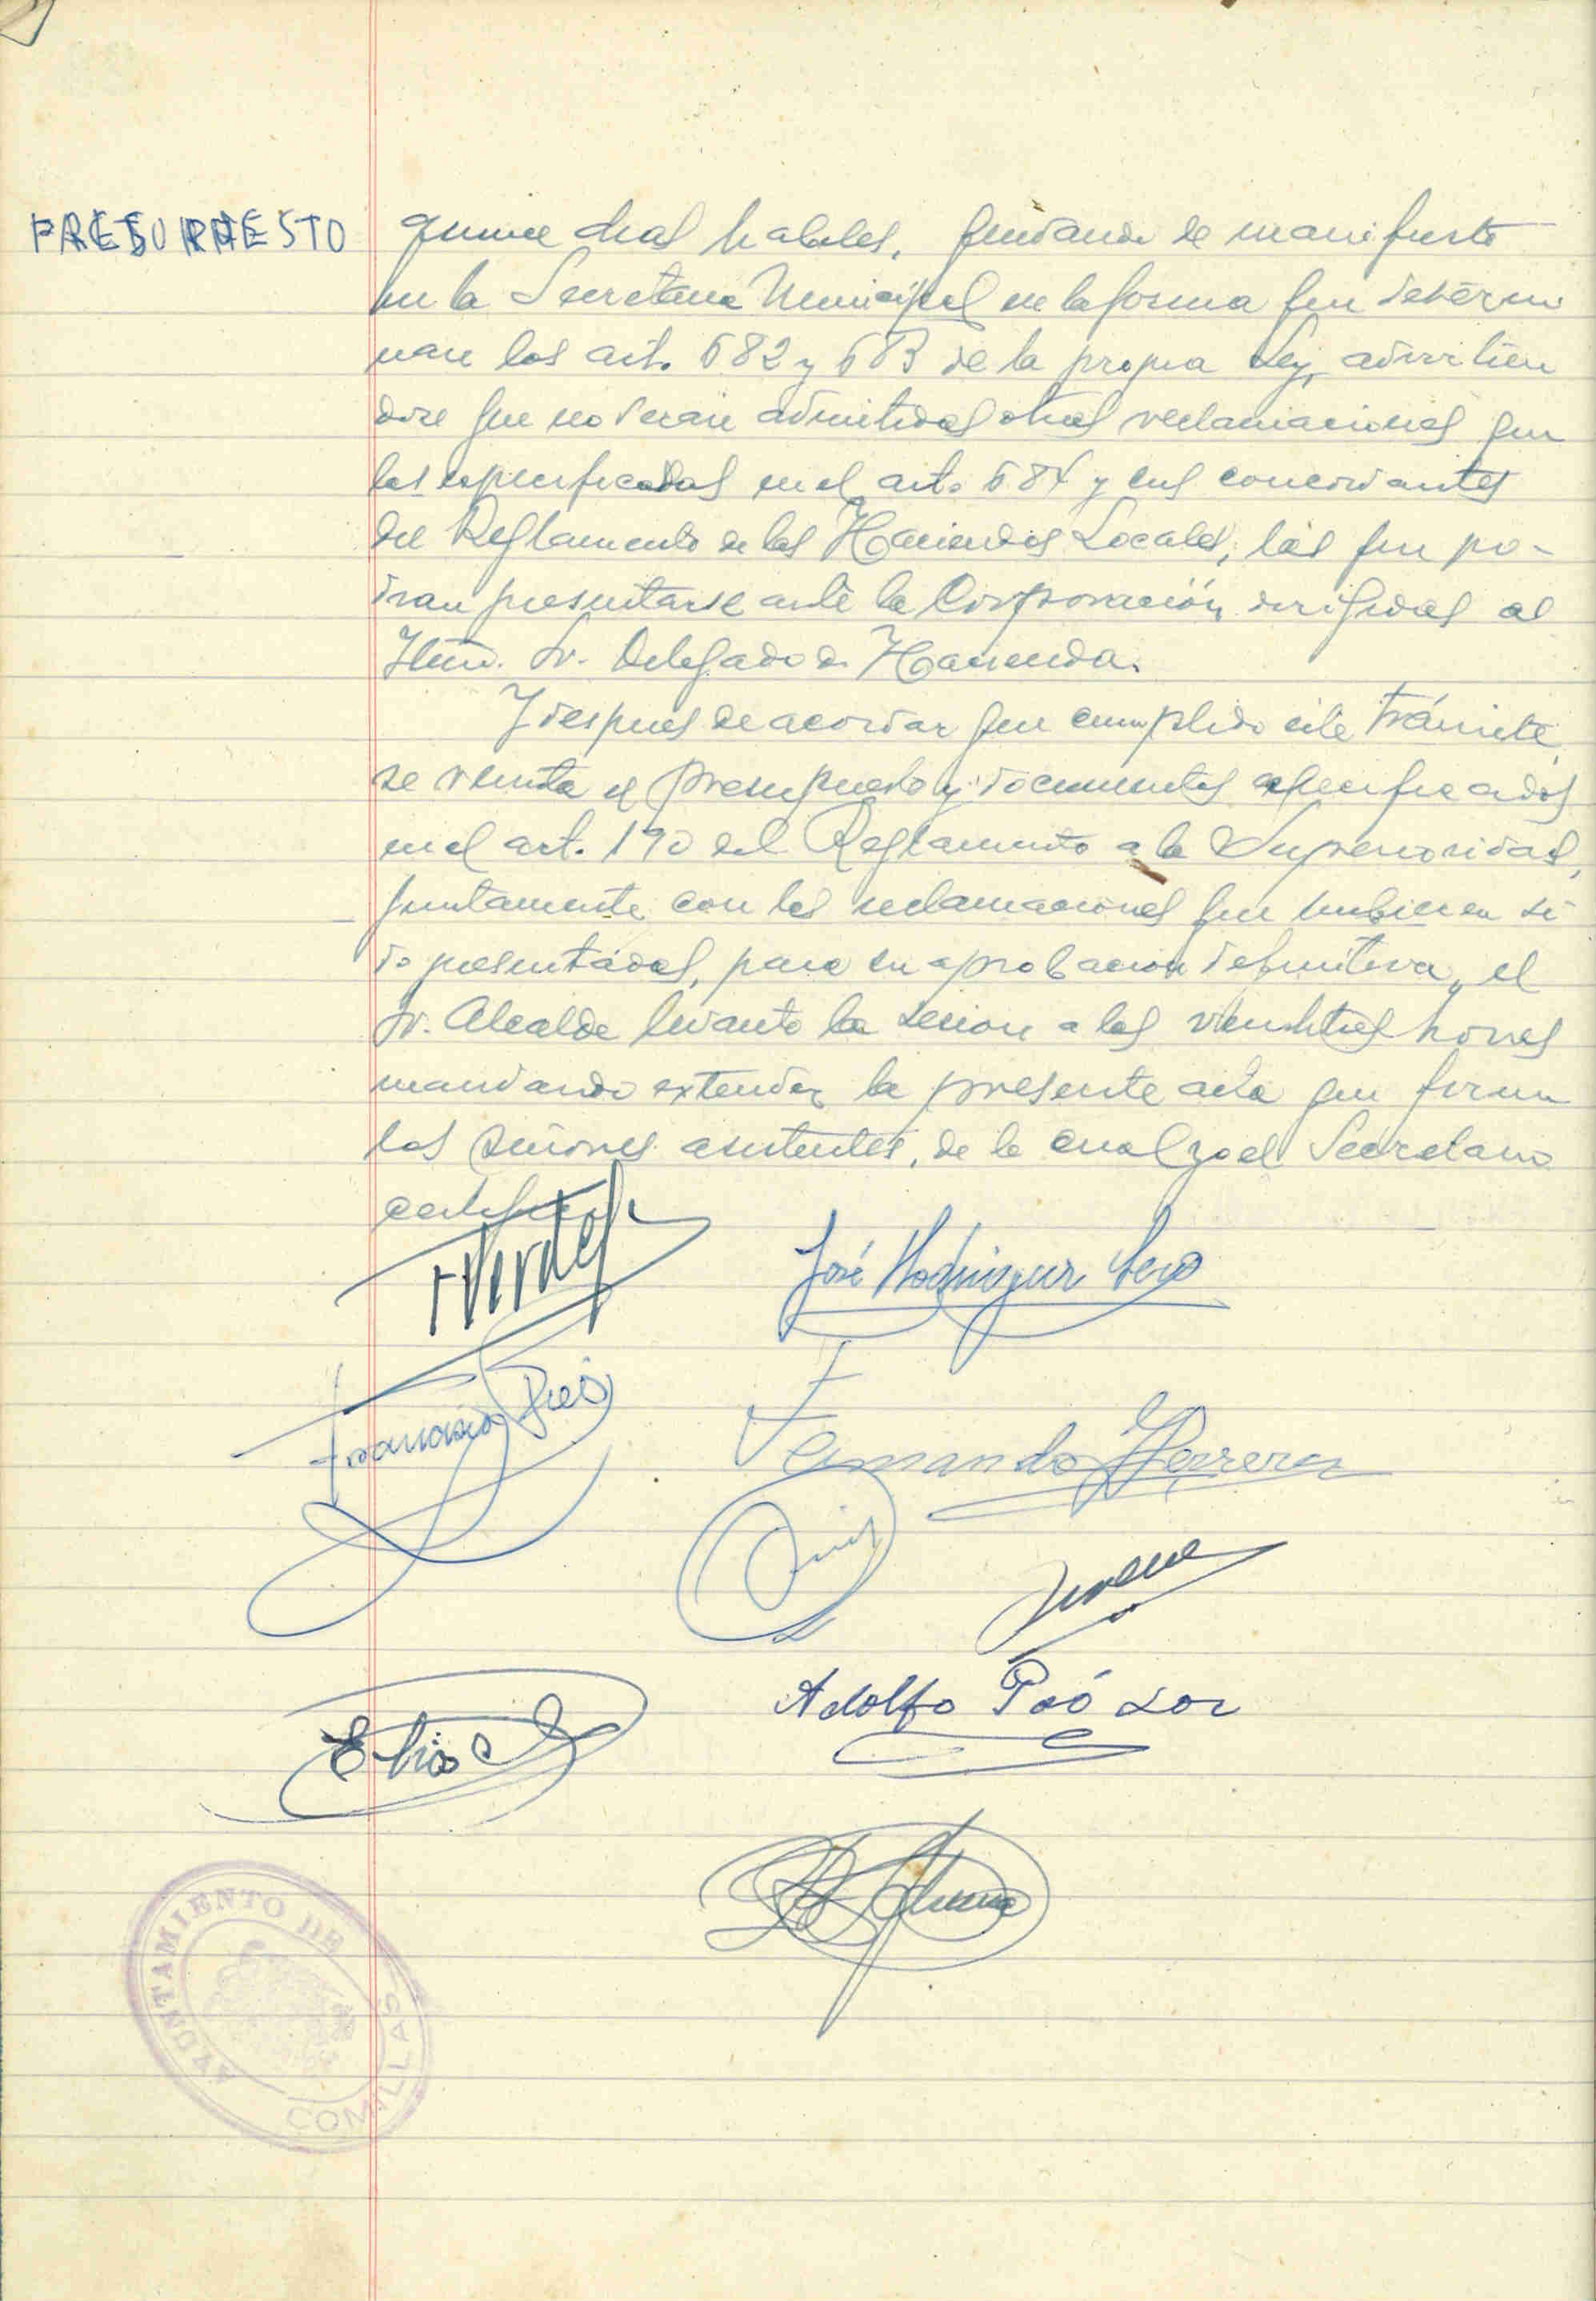 PRESUPUESTO
quince dias habiles, quedando de manifiesto
en la Secretaria Municipal en la forma que determi
nan los art. 682 y 683 de la propia Ley, advirtien
dose que no seran admitidas otras reclamaciones que
las especificadas en el art. 684 y sus concordantes
del Reglamento de las Haciendas Locales, las que po-
dran presentarse ante la Corporación, dirigidas al
Iltmo. Sr. Delegado de Hacienda.
Y despues de acordar que cumplido este trámite,
se remita el presupuesto y documentos especificados
en el art. 190 del Reglamento a la Superioridad,
juntamente con las reclamaciones que hubieren si
do presentadas, para su aprobacion definitiva, el
Sr. Alcalde levanto la sesion a las veintitres horas
mandando extender la presente acta que firman
los señores asistentes, de la cual yo el Secretario
certifico.
José Rodriguez
Francisco
Fernando Herrera
Ruiz
Adolfo Poó
AYUNTAMIENTO DE
COMILLAS